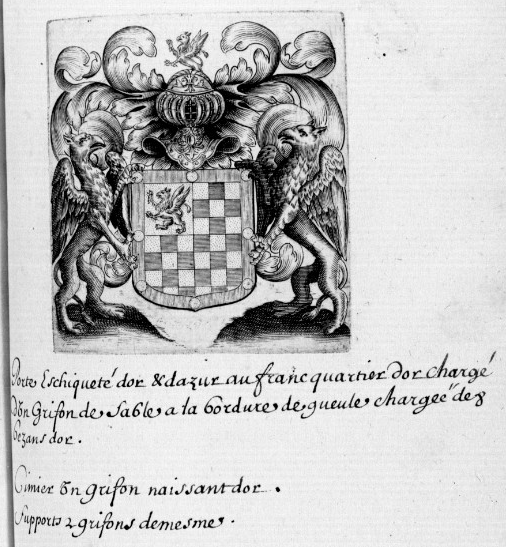 Porte Eschiqueté dor & dazur au franc quartier dor chargé
dūn Grifon de sable a la bordure de gueule chargée de 8
bezans dor.
Cimier ūn grifon naissant dor.
Supports 2 grifons demesme.